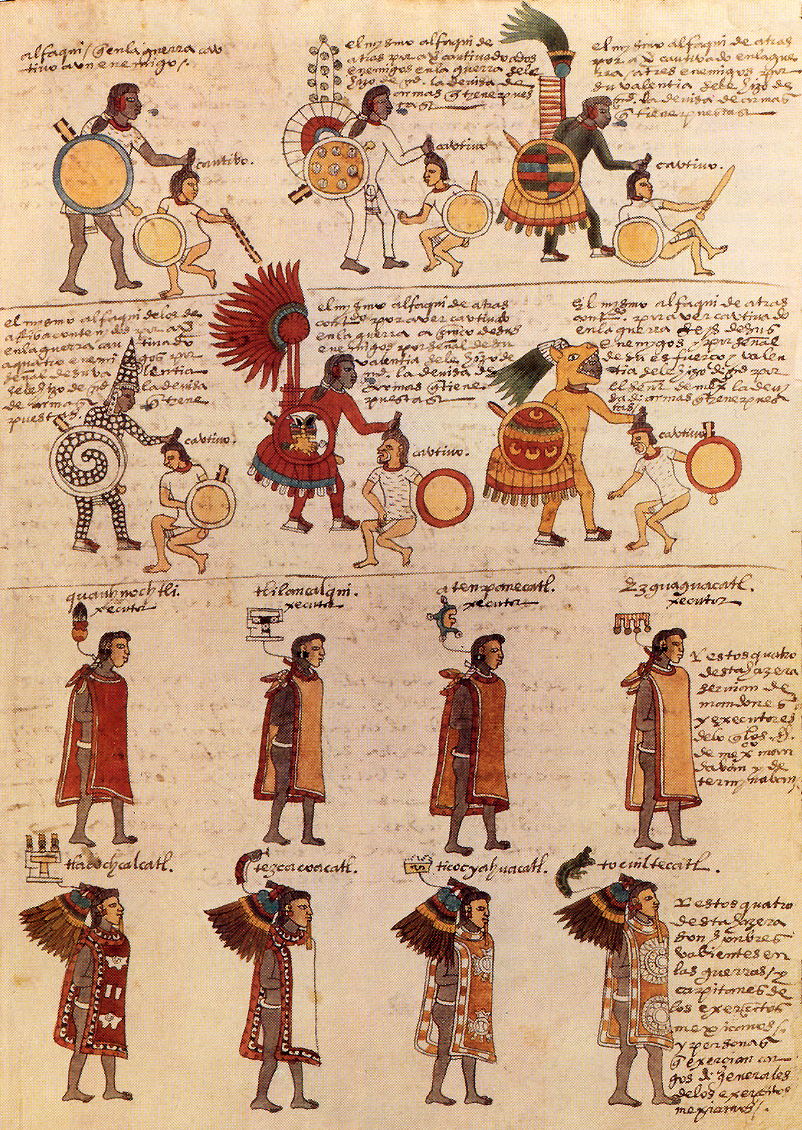 alfaqui / q̃ en la guerra cau
tivo a un enemigo /.
cautivo.
el mismo alfaqui de
atras por a ỹ cautivado dos
enemigos en la guerra se le
hizo md. la devisa de
armas q̃ tiene pues
tas
cautivo
el mismo alfaqui de atras
por a ỹ cautivado en la gue
rra / a tres enemigos por
su valentia se le hizo de
md. la devisa de armas
q̃ tiene puestas
cautivo.
el mismo alfaqui de los de
en la guerra cautivado
a quatro enemigos por
señal de su valentia
se le hizo de md. la devisa
de armas q̃ tiene
puestas
cautivo.
el mismo alfaqui de atras
contdo por aver cautivado
en la guerra a cinco de sus
enemigos por señal de su
valentia se le hizo de
md. la devisa de
armas q̃ tiene
puestas
cautivo.
El mismo alfaqui de atras
contdo. por aver cautivado
en la guerra seys de sus
enemigos / y por señal
de su esfuerço / valen
tia se le hizo de md por
el señor de mexco la devi
sa de armas q̃ tiene pues
tas
cautivo
quauhnochtli.
xecutor
tlilancalqui.
xecutor
atenpanecatl.
xecutor
Ezguaguacatl.
xecutor
Y estos quatro
desta hazera
servian de
mandones
y executores
de lo q̃ los sres.
de mexco man
davan y de
terminavan
tlacochcalcatl.
tezcacoacatl.
ticocyahuacatl.
tocuiltecatl.
Y estos quatro
desta hazera
son honbres
valientes en
las guerras / y
capitanes de
los exerçitos
mexicanos /
y personas
q̃ exercian car
gos de generales
de los exerçitos
mexicanos /.